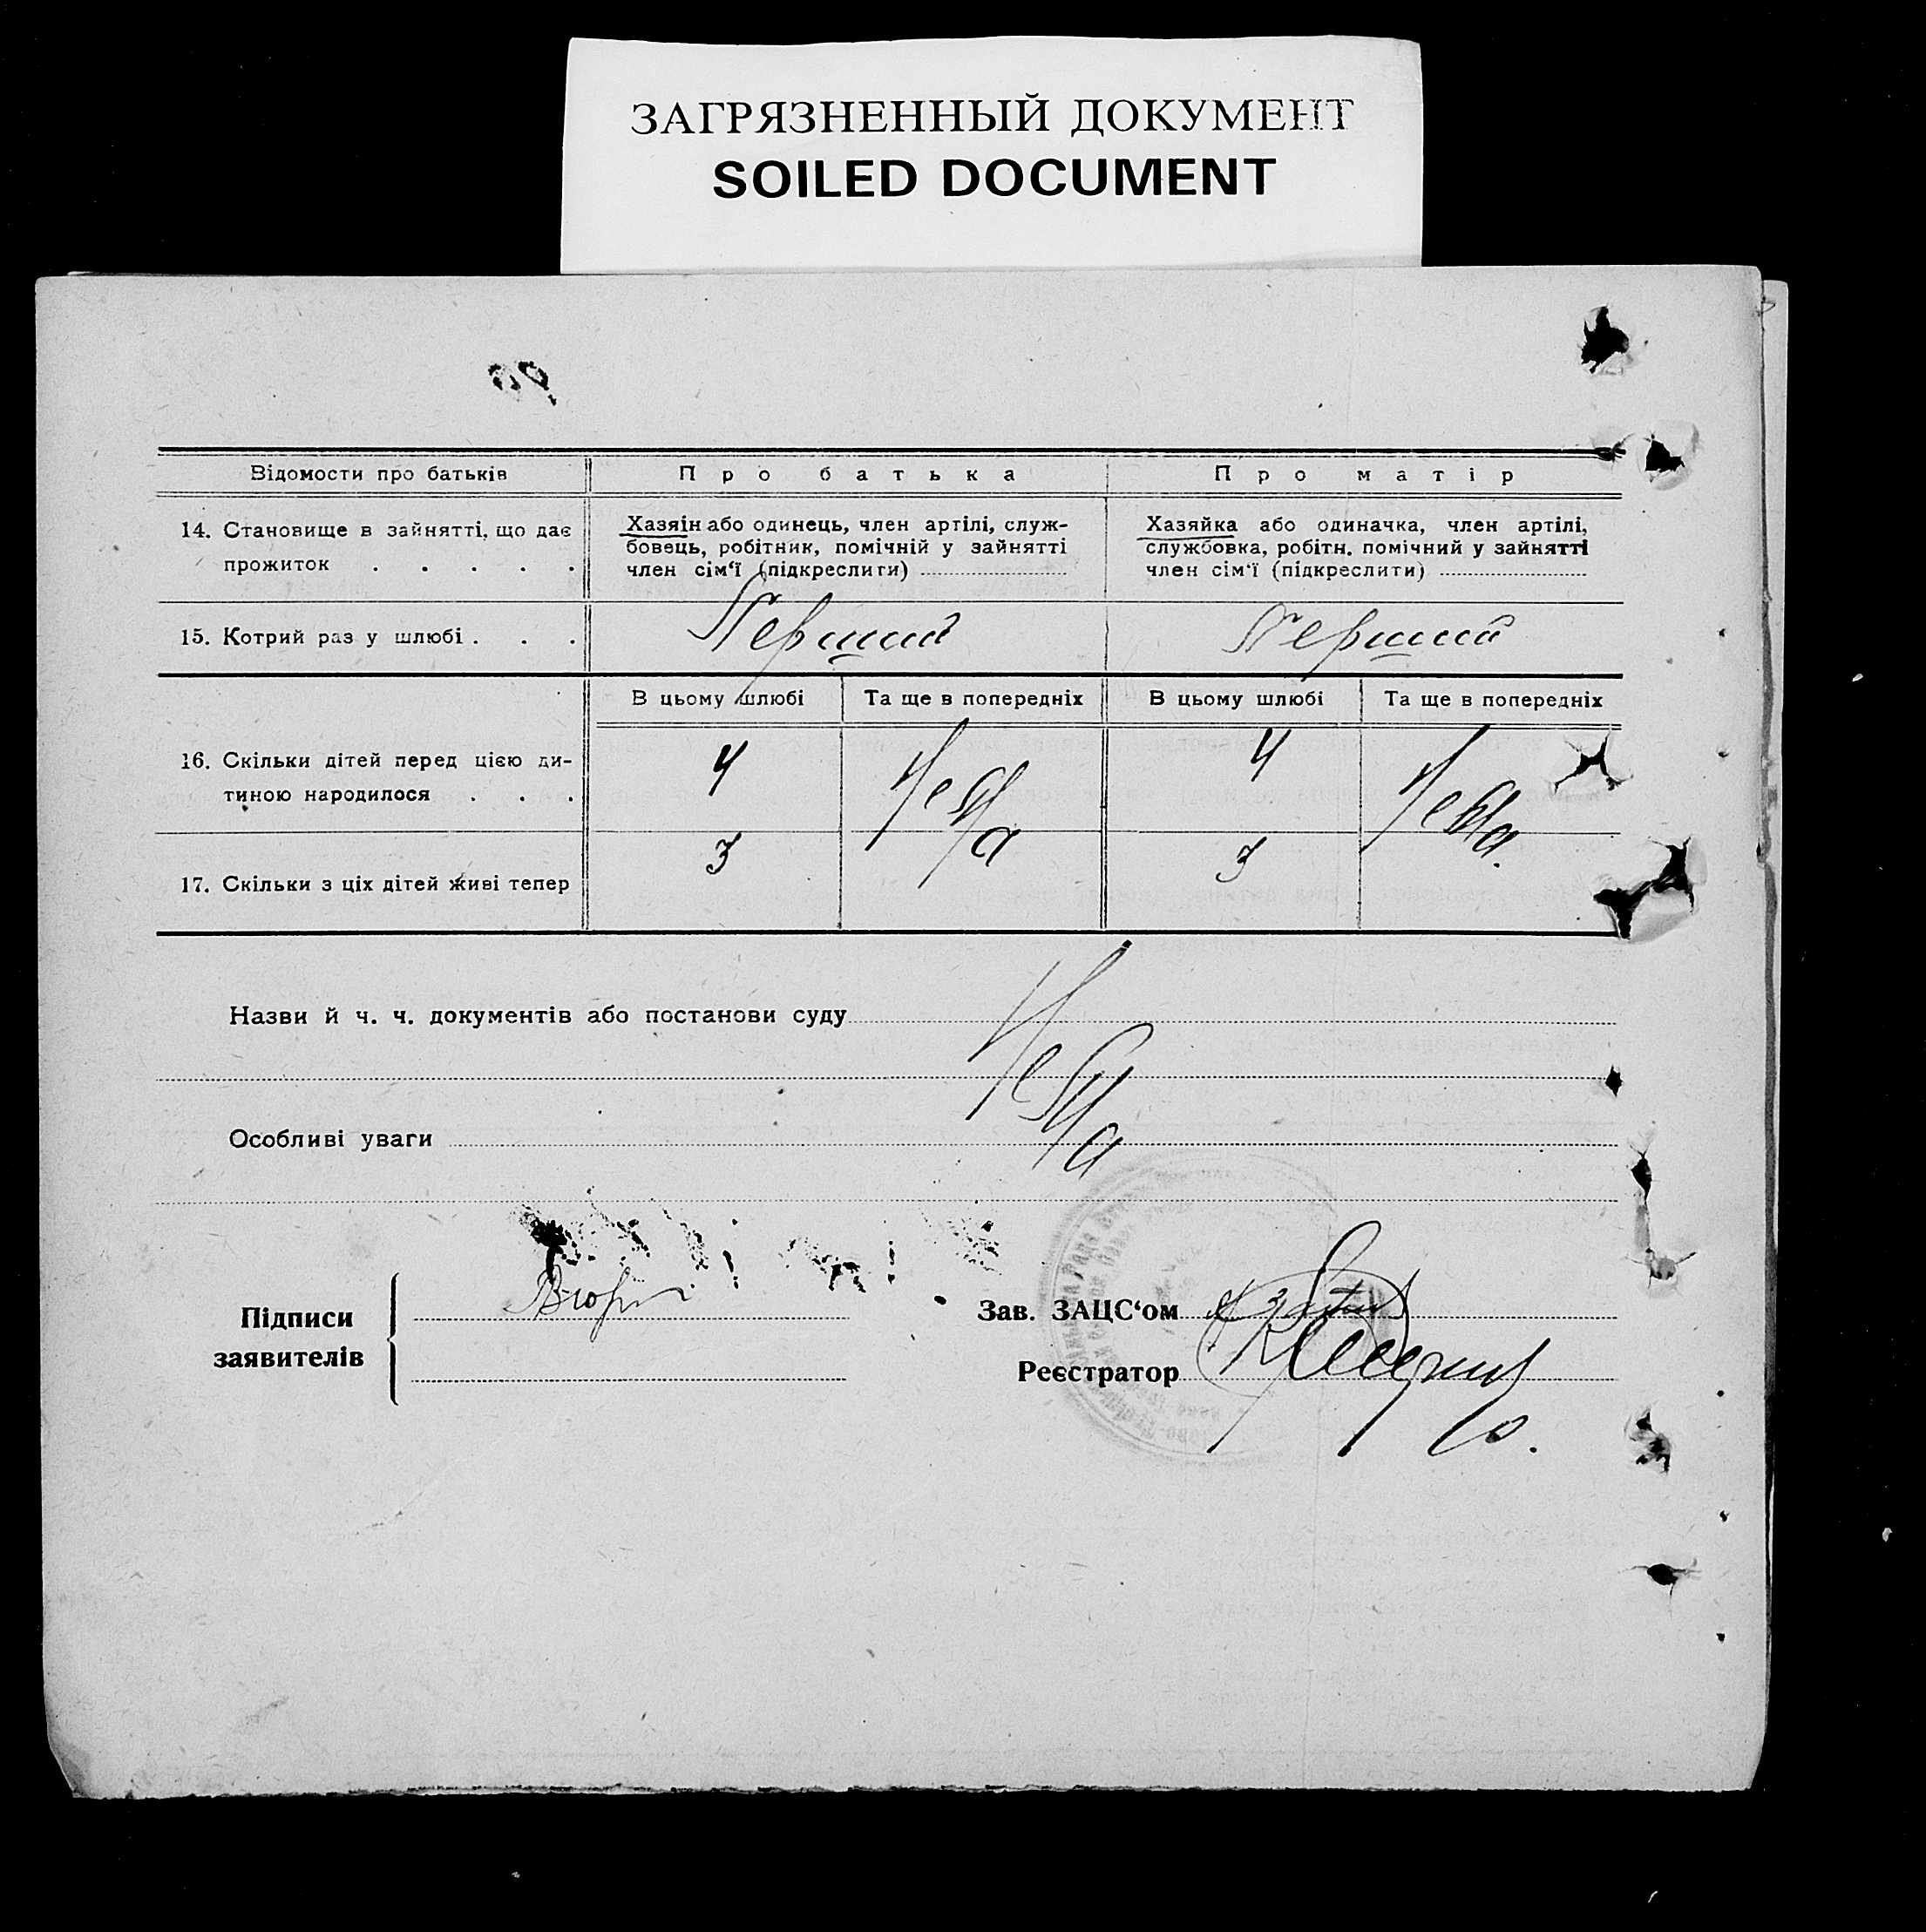 ЗАГРЯЗНЕННЫЙ ДОКУМЕНТ
SOILED DOCUMENT
Відомости про батьків
Про батька
Про матір
14. Становище в зайнятті, що дає
прожиток . . . . .
Хазяін або одинець, член артілі, служ-
бовець, робітник, помічній у зайнятті
член сім‘ї (підкреслити)
Хазяйка або одиначка, член артілі,
службовка, робітн. помічний у зайнятті
член сім‘ї (підкреслити)
15. Котрий раз у шлюбі . . .
Перший
Перший
В цьому шлюбі
Та ще в попередніх
В цьому шлюбі
Та ще в попередніх
16. Скільки дітей перед цією ди-
тиною народилося . . .
4
Нема
4
Нема
17. Скільки з ціх дітей живі тепер
3
3
Назви й ч. ч. документів або постанови суду
Нема
Особливі уваги
Підписи
заявителів
Зав. ЗАЦС‘ом
Реєстратор